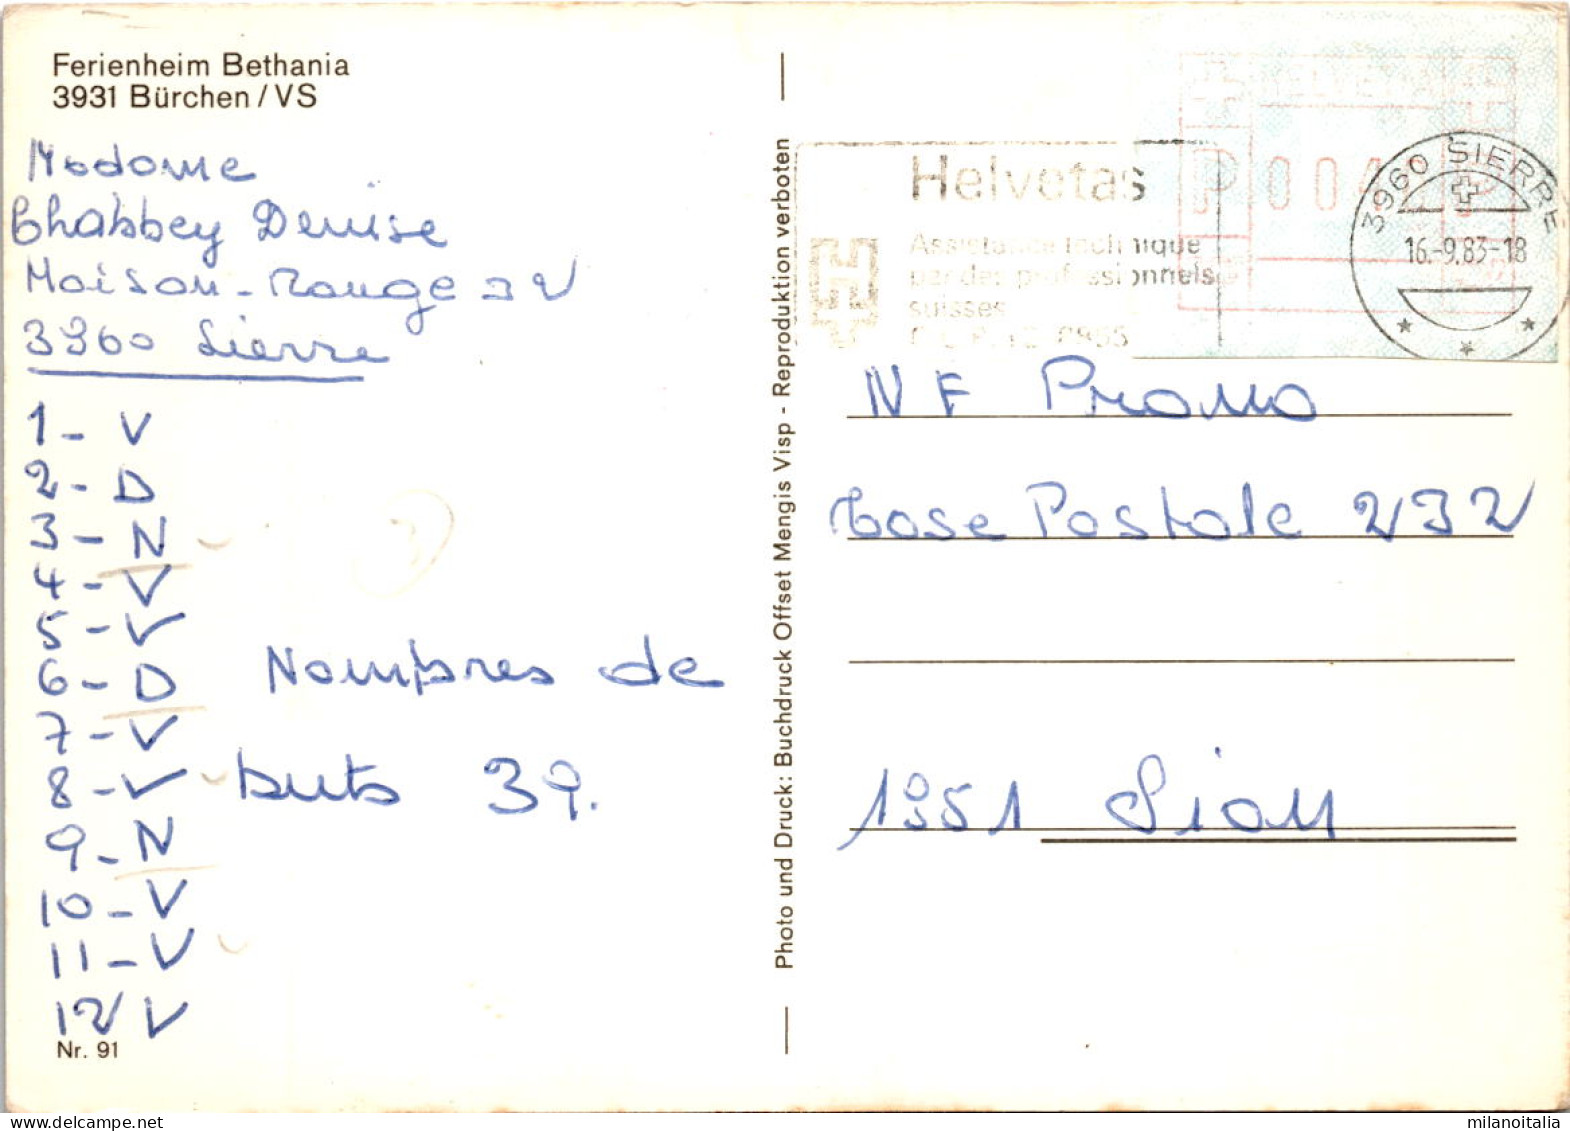 Ferienheim Bethania
3931 Bürchen / VS
Madame
Chabbey Denise
Maison-Rouge 22
3960 Sierre
1 - V
2 - D
3 - N
4 - V
5 - V
6 - D
7 - V
8 - V
9 - N
10 - V
11 - V
12 V
Nombres de
buts 39.
Nr. 91
Photo und Druck: Buchdruck Offset Mengis Visp - Reproduktion verboten
Helvetas
Assistance technique
par des professionnels
suisses
HELVETIA
P 004
3960 SIERRE
16.-9.83-18
NF Promo
Case Postale 232
1951 Sion
milanoitalia